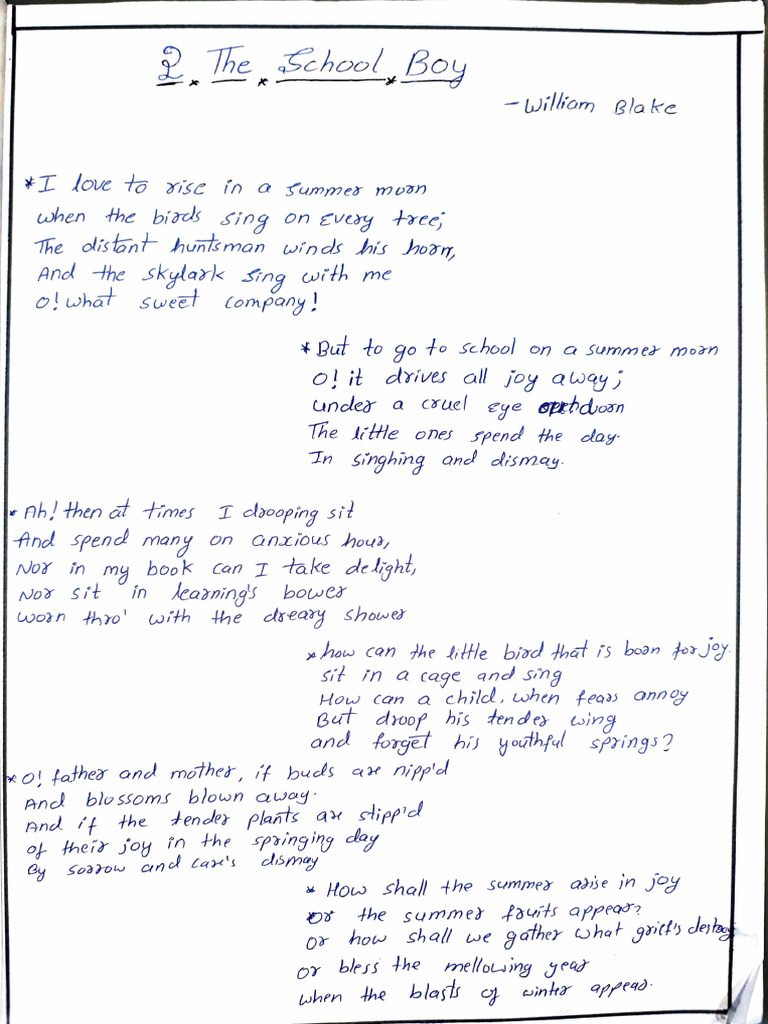 2. The School Boy
- William Blake
* I love to rise in a summer morn
when the birds sing on every tree;
The distant huntsman winds his horn,
And the skylark sing with me
O! what sweet company!
* But to go to school on a summer morn
O! it drives all joy away;
under a cruel eye
The little ones spend the day.
In singhing and dismay.
* Ah! then at times I drooping sit
And spend many on anxious hour,
Nor in my book can I take delight,
Nor sit in learning's bower
worn thro' with the dreary shower
* how can the little bird that is born for joy.
sit in a cage and sing
How can a child, when fears annoy
But droop his tender wing
and forget his youthful springs?
* O! father and mother, if buds are nipp'd
And blossoms blown away.
And if the tender plants are stipp'd
of their joy in the springing day
By sorrow and care's dismay
* How shall the summer arise in joy
or the summer fruits appear?
or how shall we gather what grief's destroy
or bless the mellowing year
when the blasts of winter appear.